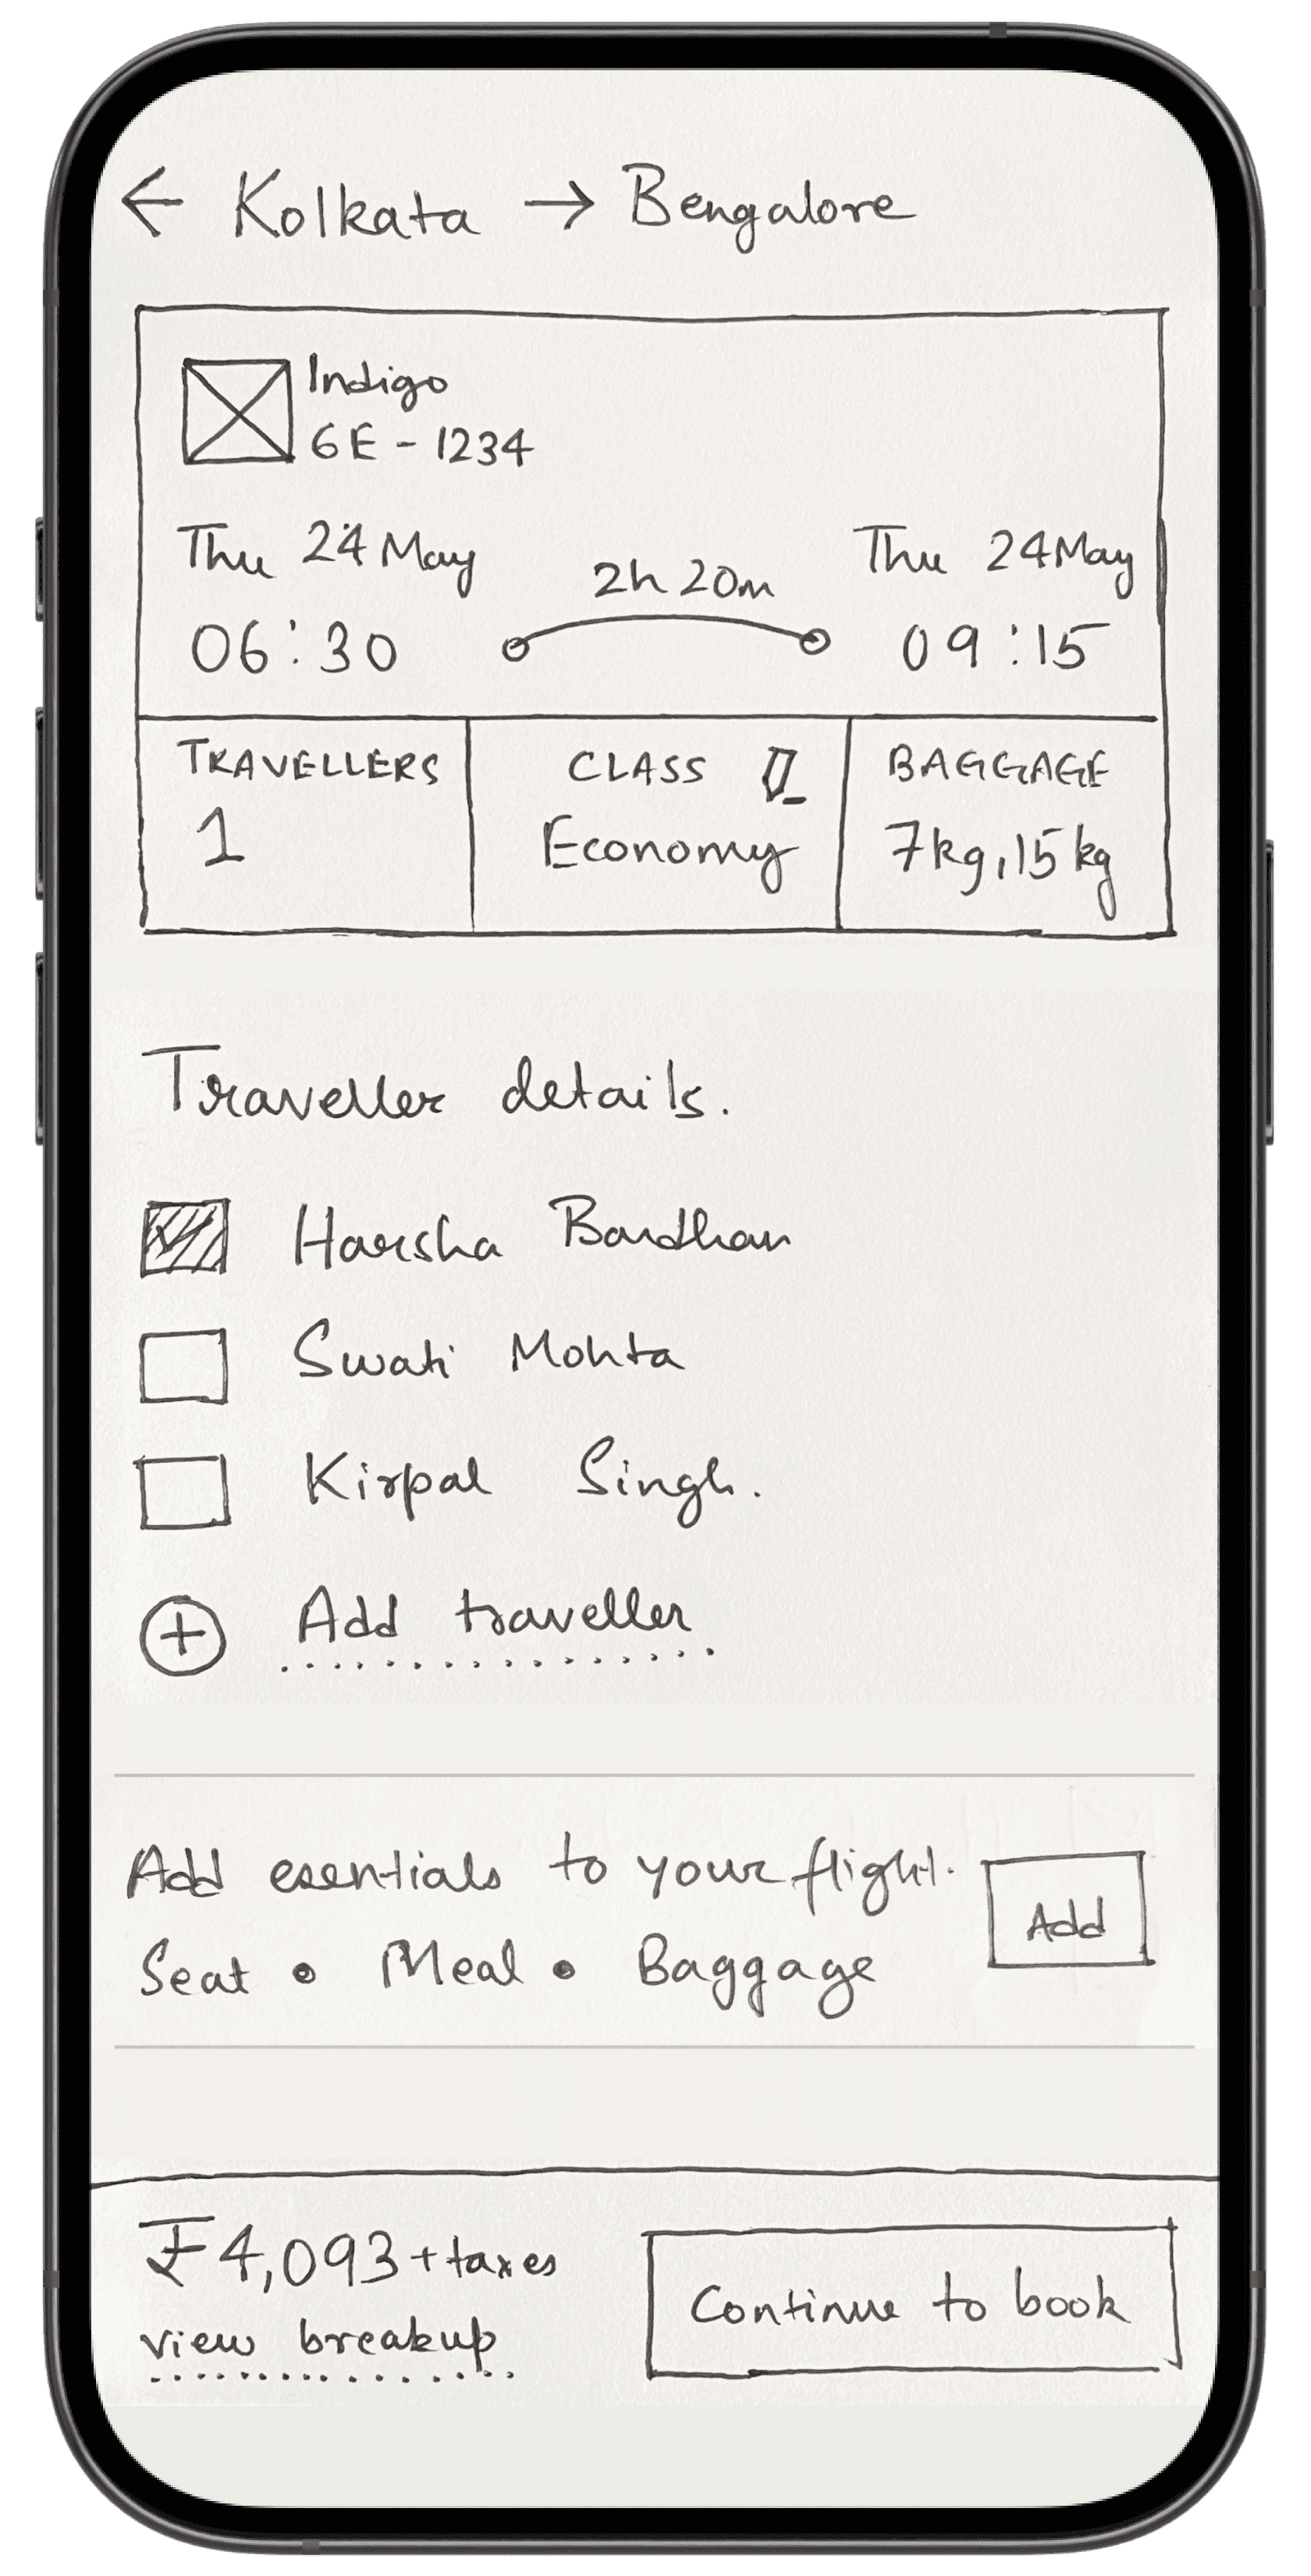 ← Kolkata → Bengalore
Indigo
6E - 1234
Thu 24 May
2h 20m
Thu 24 May
06:30
09:15
TRAVELLERS
CLASS
BAGGAGE
1
Economy
7kg, 15kg
Traveller details.
Harsha Bardhan
Swati Mohta
Kirpal Singh.
Add traveller
Add esentials to your flight.
Add
Seat • Meal • Baggage
₹4,093 + taxes
view breakup
Continue to book